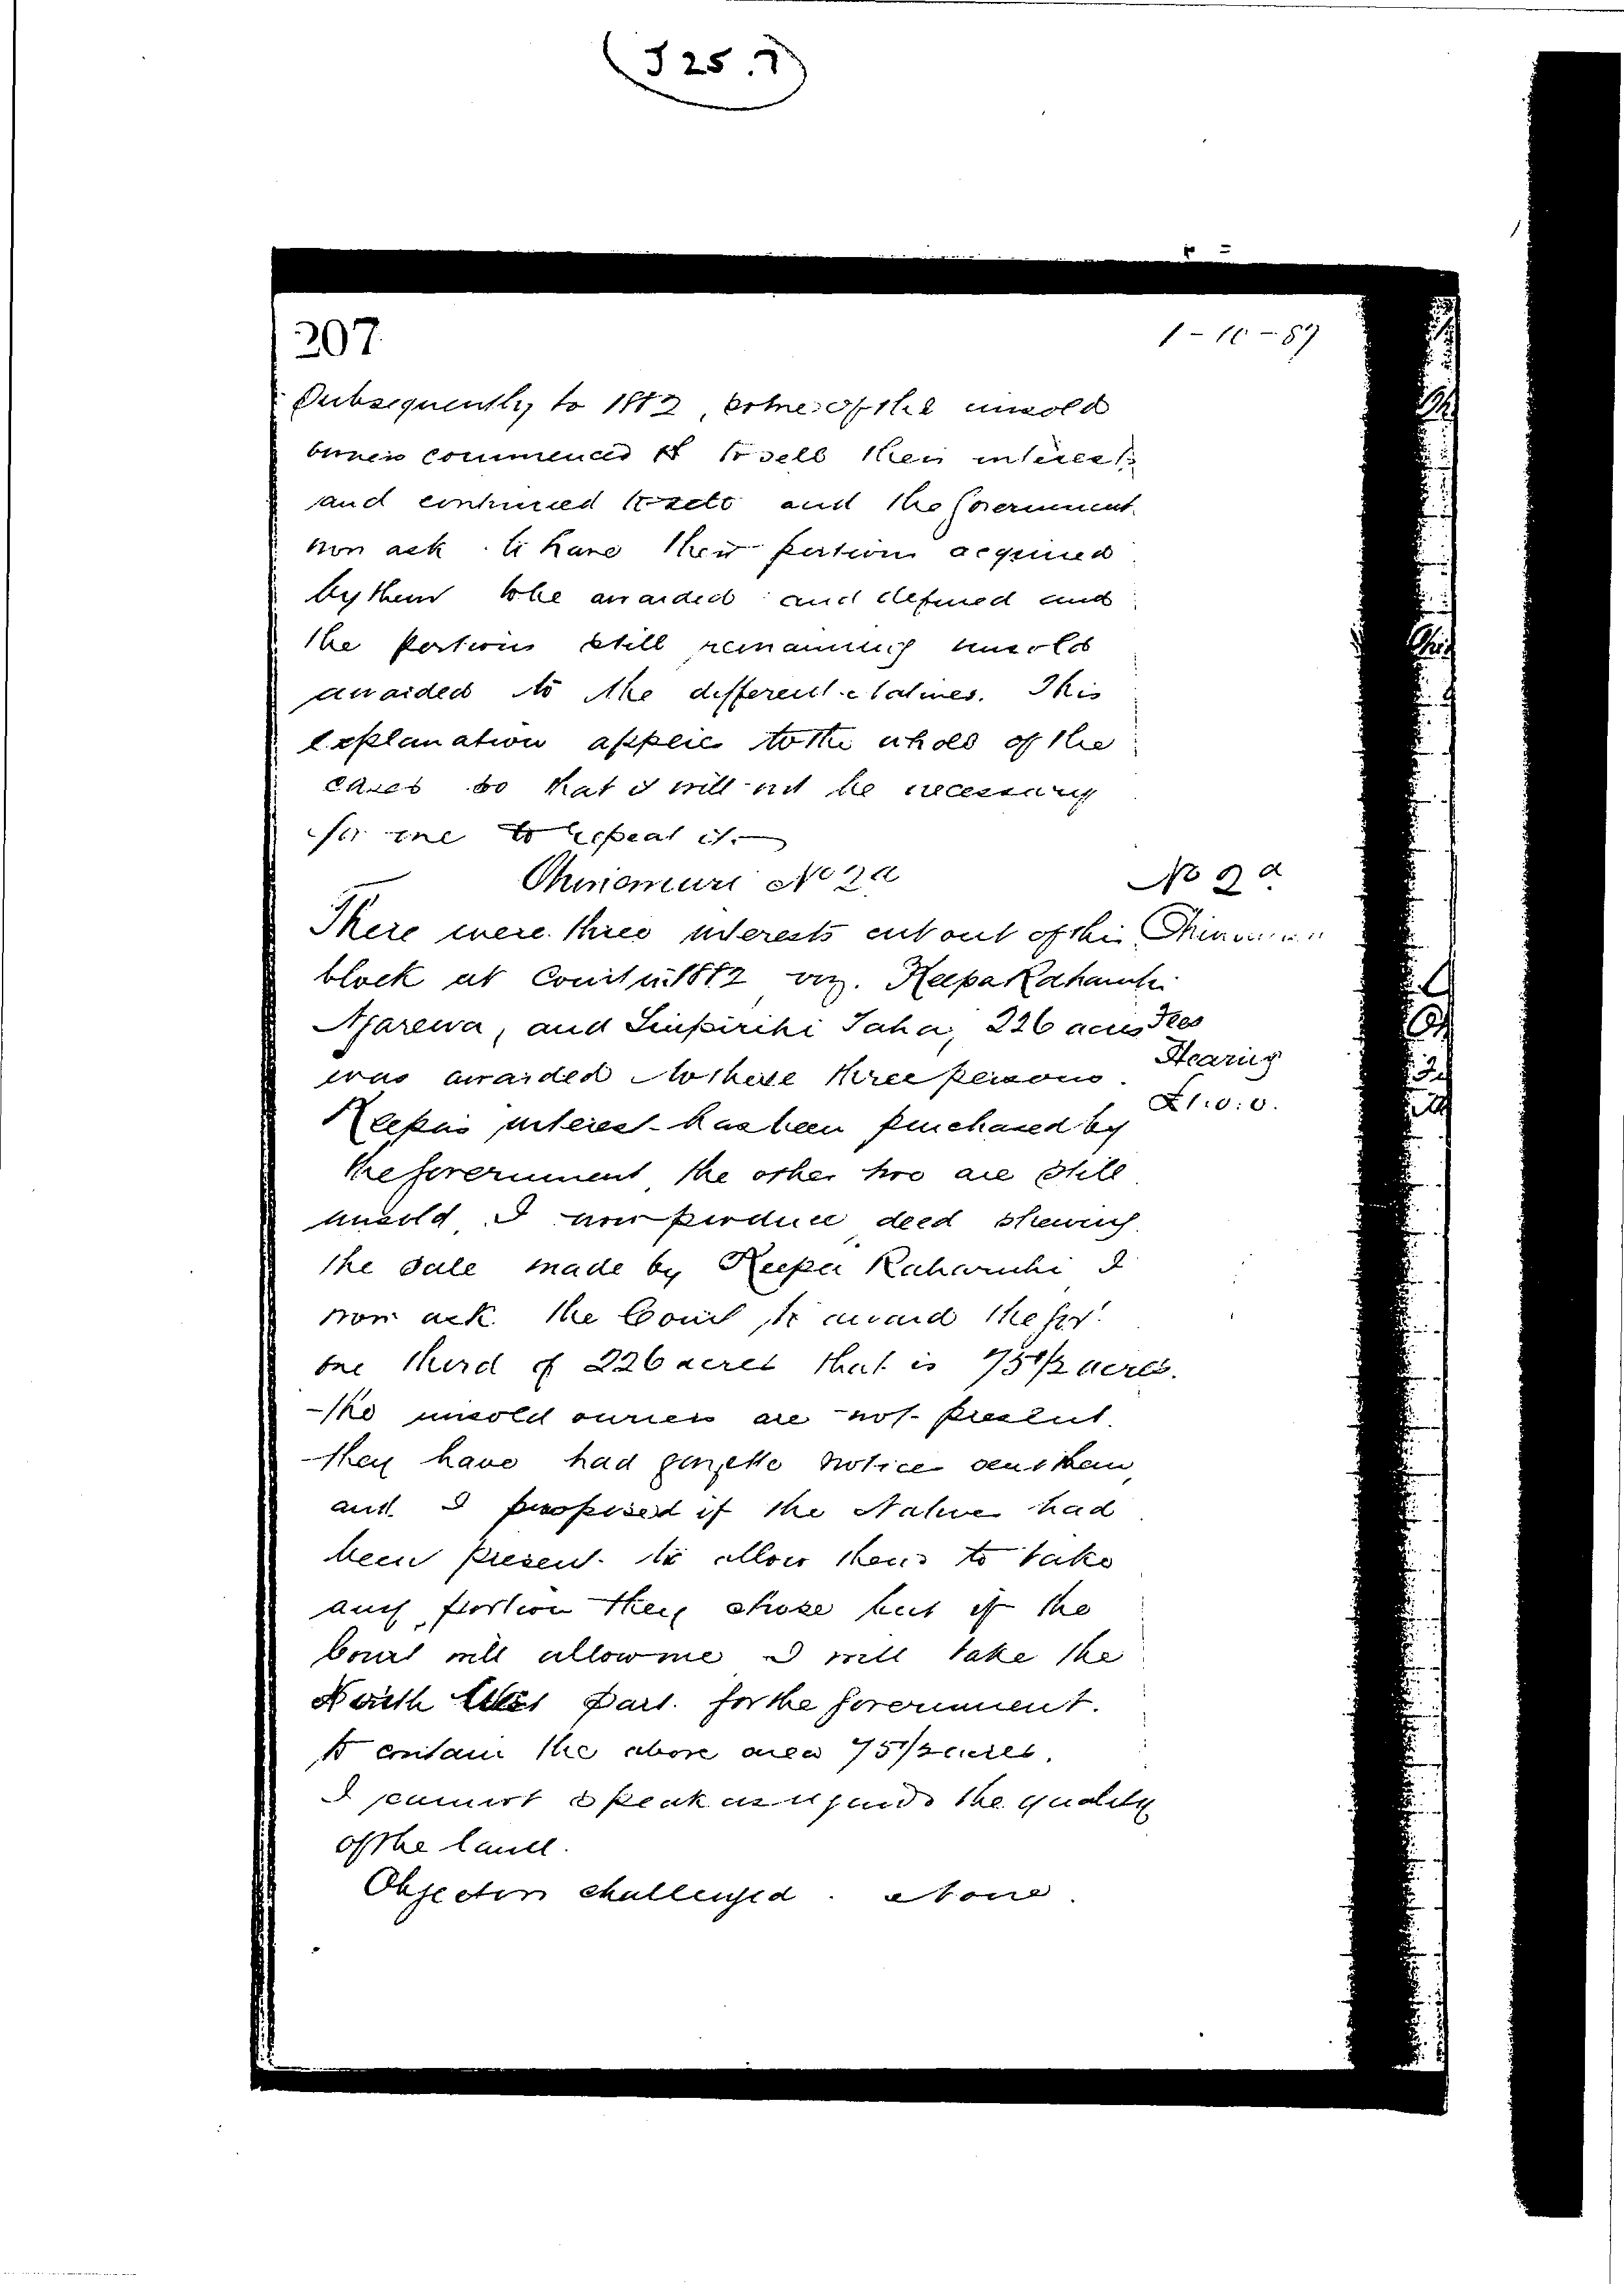 (J 25.7)
207.
1-10-89
Subsequently to 1882, some of the unsold
owners commenced to sell their interests
and continued to do so and the Government
now ask to have their portion acquired
by them to be awarded and defined and
the portions still remaining unsold
awarded to the different . This
explanation applies to the whole of the
cases so that it will not be necessary
for me to repeat it.
Ohinemuri No 2a
No 2a
There were three interests cut out of this
Ohinemuri
block at Court in 1882 viz. Keepa Raharuhi
Ngarewa, and Taha, 226 acres
Fees
was awarded to these three persons.
Hearing
£1.0.0.
Keepa's interest has been purchased by
the Government, the other two are still
unsold. I now produce deed shewing
the sale made by Keepa Raharuhi I
now ask the Court to award the Govt
one third of 226 acres that is 75 1/2 acres.
The unsold owners are not present.
they have had gazette notice sent them,
and I proposed if the Natives had
been present to allow them to take
any portion they chose but if the
Court will allow me I will take the
North West part for the Government.
to contain the above area 75 1/2 acres.
I cannot speak as regards the quality
of the land.
Objectors challenged. None.